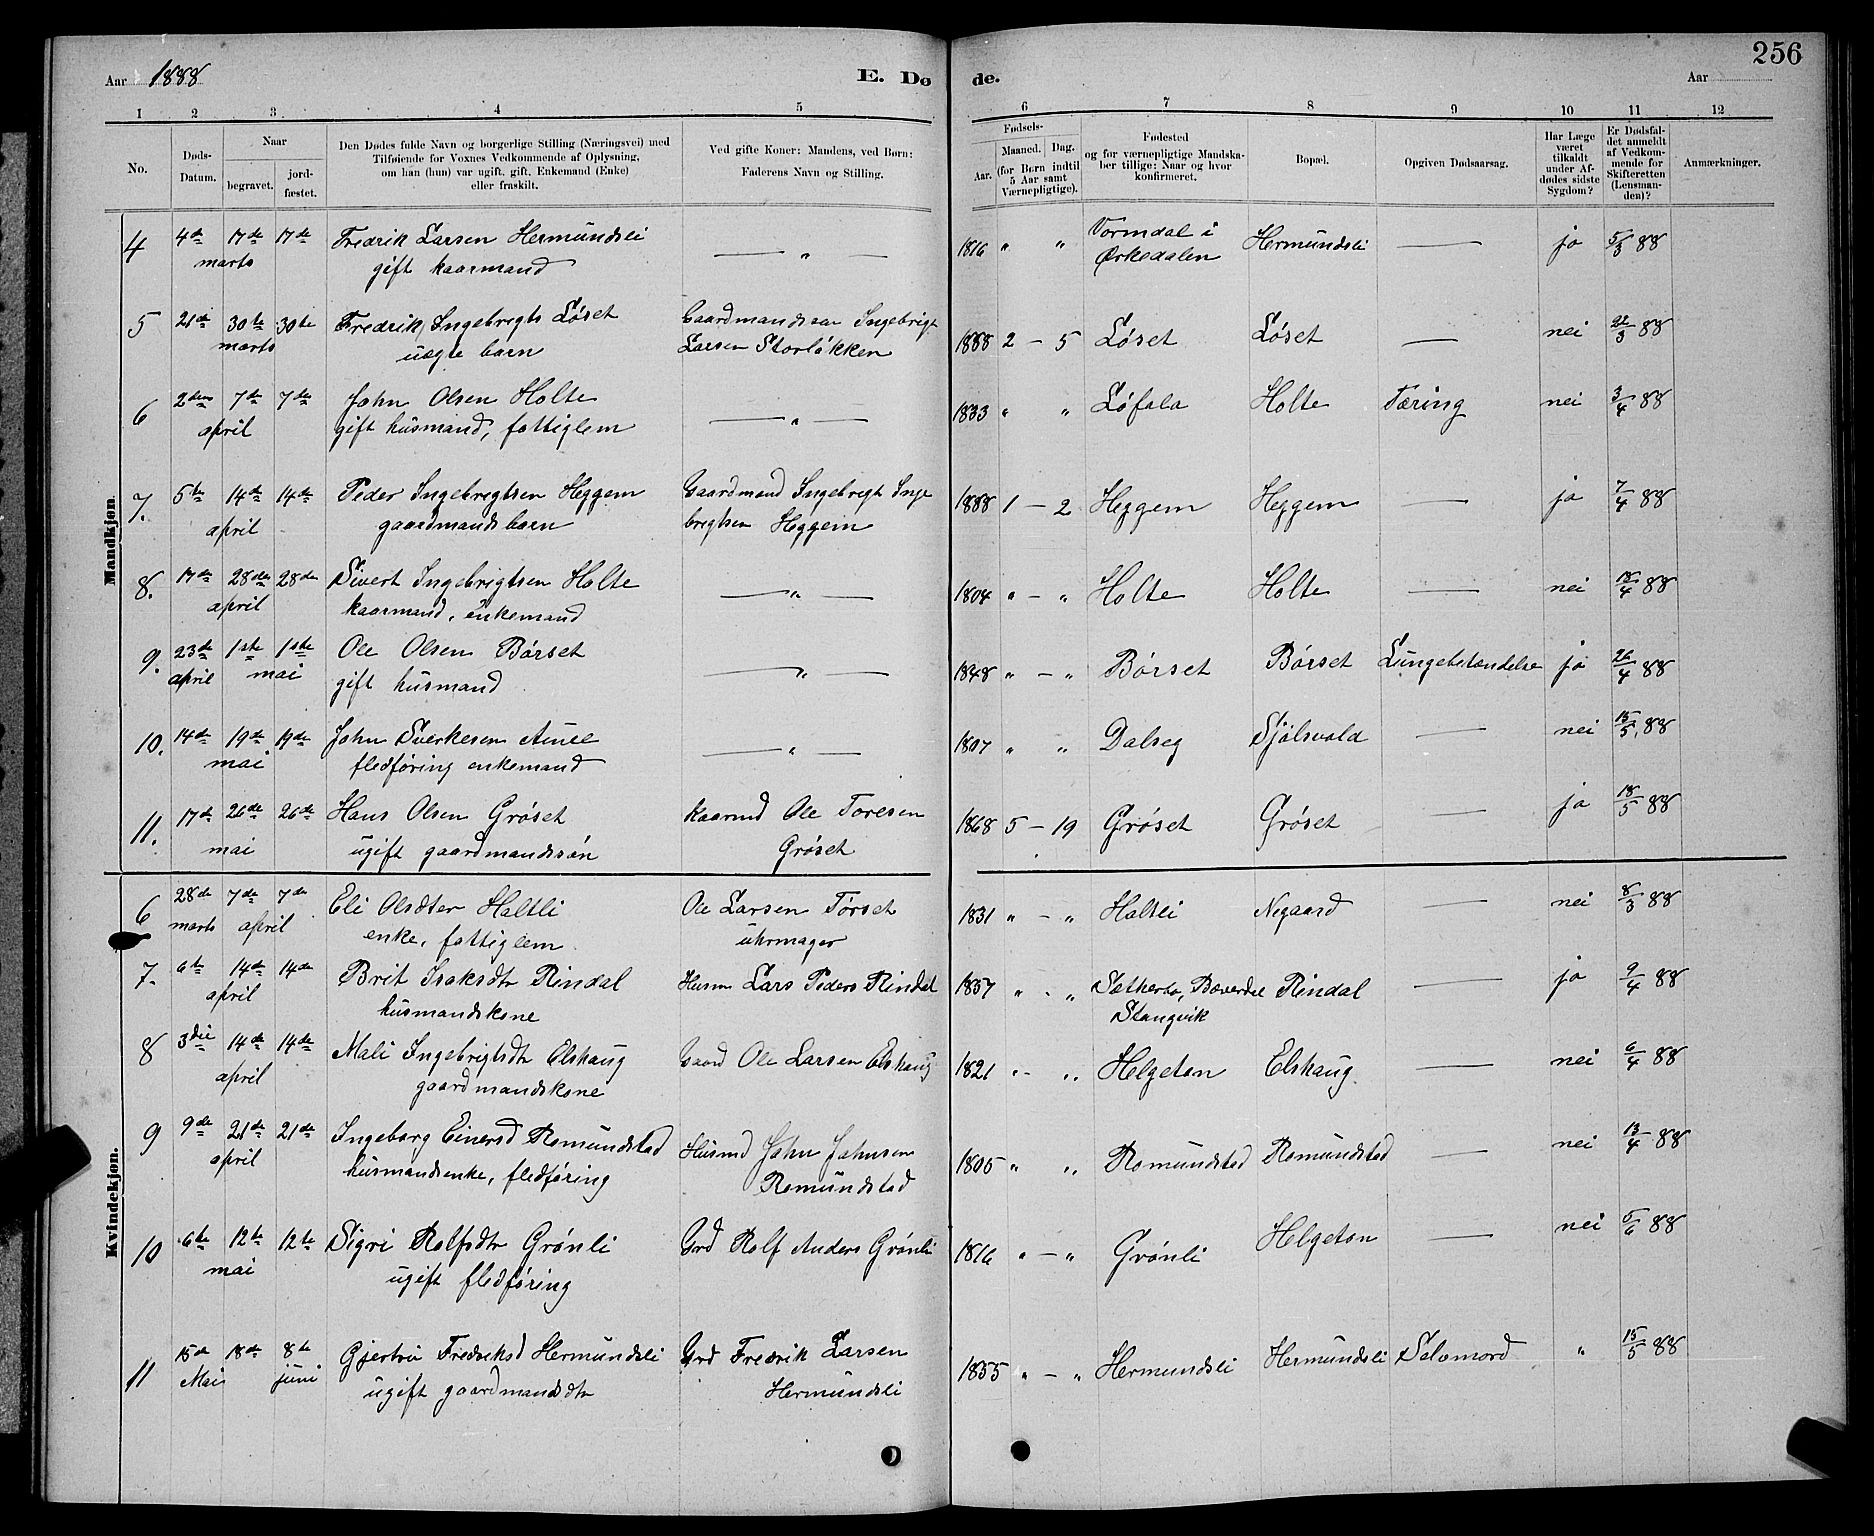 Aar 1888
E. Dø
de.
Aar
256
1 2 3 4 5 6 7 8 9 10 11 12
No.
Døds-Datum.
Naar
begravet.
jord-fæstet.
Den Dødes fulde Navn og borgerlige Stilling (Næringsvei) med
Tilføiende for Voxnes Vedkommende af Oplysning,
om han (hun) var ugift, gift, Enkemand (Enke)
eller fraskilt.
Ved gifte Koner: Mandens, ved Børn:
Faderens Navn og Stilling.
Fødsels-
Aar. Maaned. Dag.
(for Børn indtil
5 Aar samt
Værnepligtige).
Fødested
og for værnepligtige Mandska-
ber tillige: Naar og hvor
konfirmeret.
Bopæl.
Opgiven Dødsaarsag.
Har Læge
været
tilkaldt
under Af-
dødes sidste
Sygdom?
Er Dødsfal-
det anmeldt
af Vedkom-
mende for
Skifteretten
(Lensman-
den)?
Anmærkninger.
Mandkjøn.
4 4de 17de 17de Fredrik Larsen Hermundsli — " — 1816 " " Vormdal i Hermundsli — ja 5/3 88
marts gift kaarmand Ørkedalen
5 21de 30te 30te Fredrik Ingebrigts Løset Gaardmandssøn Ingebrigt 1888 2 – 5 Løset Løset — nei 22/3 88
marts uægte barn Larsen Storløkken
6 2den 7de 7de John Olsen Holte — " — 1833 " " Løfald Holte Tæring nei 3/4 88
april gift husmand, fattiglem
7. 5te 14de 14de Peder Ingebrigtsen Heggem Gaardmand Ingebrigt Inge 1888 1 – 2 Heggem Heggem — ja 7/4 88
april gaardmands barn brigtsen Heggem
8. 17de 28de 28de Sivert Ingebrigtsen Holte — " — 1804 " – " Holte Holte — nei 18/4 88
april kaarmand, enkemand
9. 23de 1ste 1ste Ole Olsen Børset — " — 1848 " – " Børset Børset Lungebetændelse ja 26/4 88
april mai gift husmand
10. 14de 19de 19de John Sverkesen Aune — " — 1807 " " Dalseg Sjølsvold — nei 15/5 88
mai fledføring enkemand
11. 17de 26de 26de Hans Olsen Grøset kaarmd Ole Toresen 1868 5 – 19 Grøset Grøset — ja 18/5 88
mai ugift gaardmandssøn Grøset
Kvindekjøn.
6 28de 7de 7de Eli Olsdtr Haltli Ole Larsen Tørset 1831 " – " Haltli Negaard — nei 8/3 88
marts april enke, fattiglem uhrmager
7. 6te 14de 14de Brit Isaksdtr Rindal Husm Lars Peders Rindal 1837 " - " Sæther Rindal — ja 9/4 88
april husmandskone Stangvik
8 3die 14de 14de Mali Ingebrigtsdtr Elshaug Gaard Ole Larsen Elshaug 1821 " - " Helgeton Elshaug — nei 6/4 88
april gaardmandskone
9 9de 21de 21de Ingeborg Einersd Romundstad Husmd John Johnsen 1805 " " Romundstad Romundstad — nei 13/4 88
april husmandsenke, fledføring Romundstad
10 6te 12te 12te Sigri Rolfsdtr Grønli Grd Rolf Anders Grønli 1816 " – " Grønli Helgeton — nei 5/6 88
mai ugift fledføring
11 15de 18de 8te Gjertru Fredriksd Hermundsli Grd Fredrik Larsen 1855 " – " Hermundsli Hermundsli Selvmord " 15/5 88
Mai juni ugift gaardmandsdtr Hermundsli